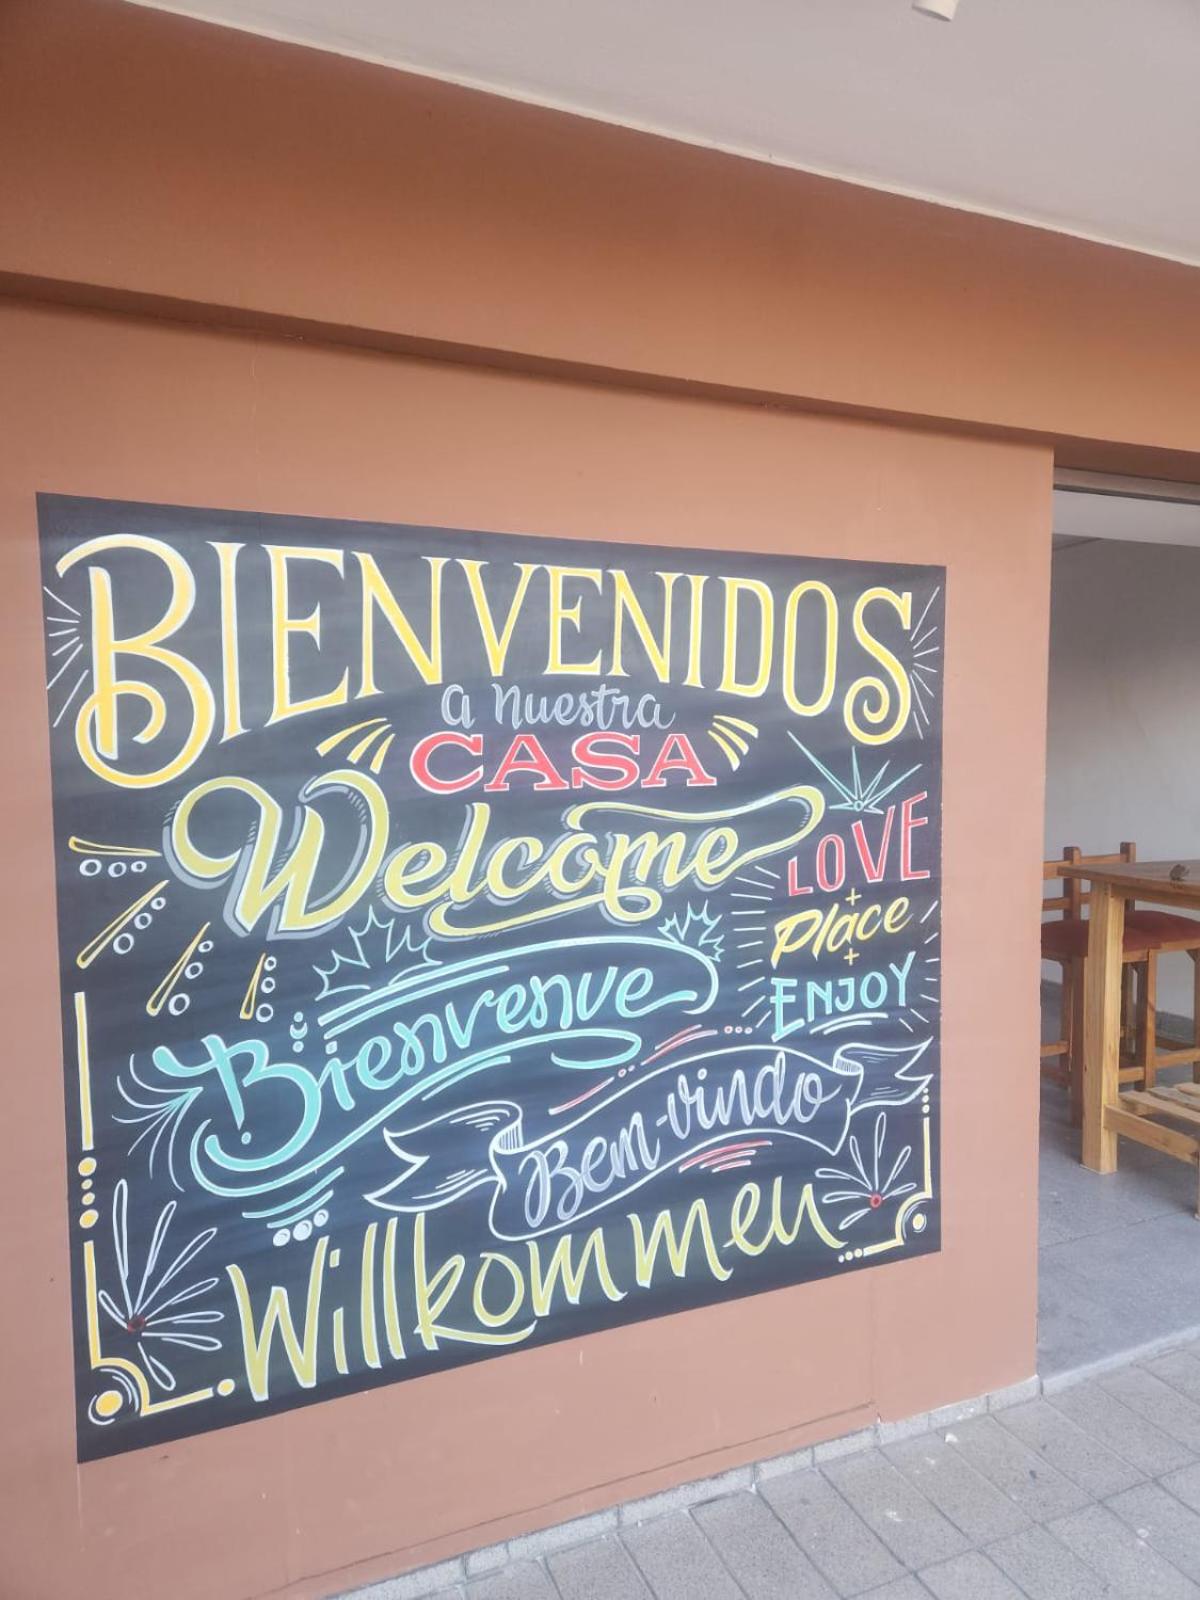 BIENVENIDOS
a Nuestra
CASA
Welcome
LOVE
+
Place
+
ENJOY
Bienvenue
Bem-vindo
Willkommen